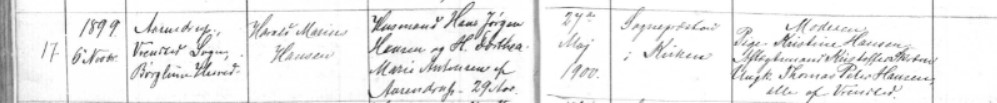 1899.
17 6' Novbr.
Aarendrup,
Vrensted Sogn,
Børglum Herred.
Harald Marius
Hansen
Husmand Hans Jørgen
Hansen og H. Dorthea
Marie Antonsen af
Aarendrup. 29 Aar.
27de
Maj
1900.
Sognepræsten
i Kirken
Moderen
Pige Kristine Hansen
Aftægtsmand Kristoffer
Ungk. Thomas Peter Hansen,
alle af Vrensted.